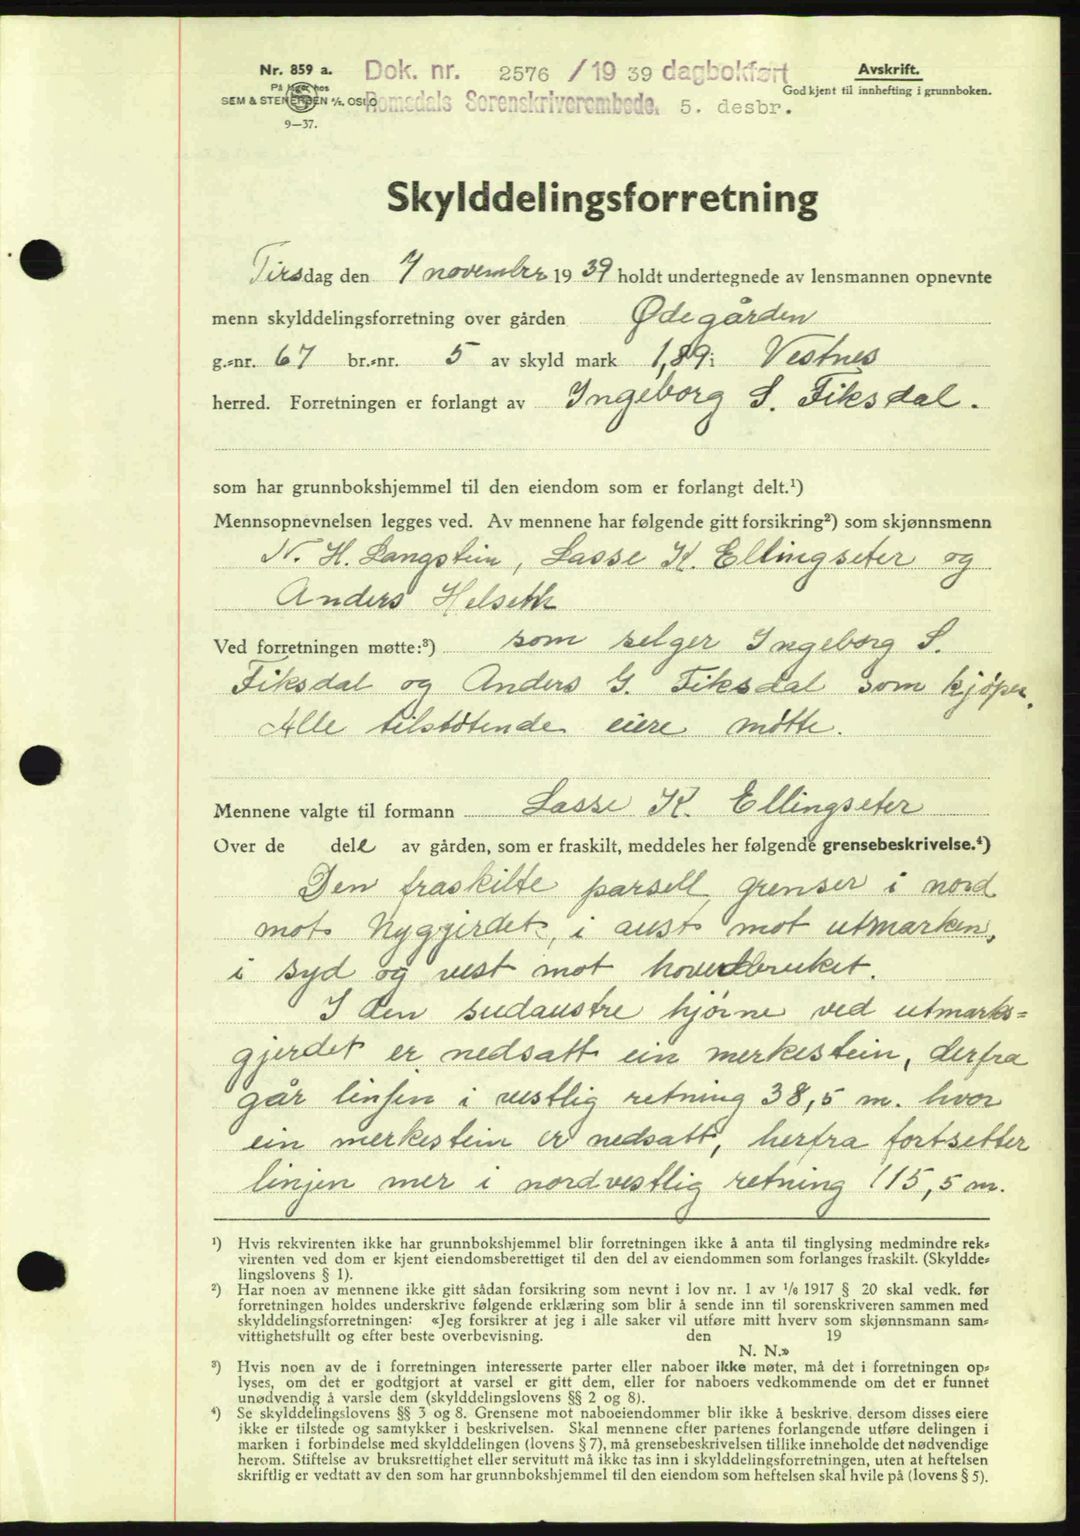 Nr. 859 a.
På lager hos
SEM & STENERSEN A/S, OSLO
9—37.
Dok. nr. 2576 /19 39 dagbokført
Romsdals Sorenskriverembede, 5. desbr.
Avskrift.
Godkjent til innhefting i grunnboken.
Skylddelingsforretning
Tirsdag den 7 november 19 39 holdt undertegnede av lensmannen opnevnte
menn skylddelingsforretning over gården Ødegården
g.-nr. 67 br.-nr. 5 av skyld mark 1,89 i Vestnes
herred. Forretningen er forlangt av Ingeborg S. Fiksdal.
som har grunnbokshjemmel til den eiendom som er forlangt delt.¹)
Mennsopnevnelsen legges ved. Av mennene har følgende gitt forsikring²) som skjønnsmenn
N. H. Langstein, Lasse K. Ellingseter og
Anders Helseth
Ved forretningen møtte:³) som selger Ingeborg S.
Fiksdal og Anders G. Fiksdal som kjøper.
Alle tilstøtende eiere møtte.
Mennene valgte til formann Lasse K. Ellingseter
Over de dele av gården, som er fraskilt, meddeles her følgende grensebeskrivelse.⁴)
Den fraskilte parsell grenser i nord
mot Nygjerdet, i aust mot utmarken,
i syd og vest mot hovedbruket.
I den sudaustre hjørne ved utmarks=
gjerdet er nedsatt ein merkestein, derfra
går linjen i vestlig retning 38,5 m. hvor
ein merkestein er nedsatt, herfra fortsetter
linjen mer i nordvestlig retning 115,5 m.
¹) Hvis rekvirenten ikke har grunnbokshjemmel blir forretningen ikke å anta til tinglysing medmindre rek-
virenten ved dom er kjent eiendomsberettiget til den del av eiendommen som forlanges fraskilt. (Skyldde-
lingslovens § 1).
²) Har noen av mennene ikke gitt sådan forsikring som nevnt i lov nr. 1 av 1/6 1917 § 20 skal vedk. før
forretningen holdes underskrive følgende erklæring som blir å sende inn til sorenskriveren sammen med
skylddelingsforretningen: «Jeg forsikrer at jeg i alle saker vil utføre mitt hverv som skjønnsmann sam-
vittighetsfullt og efter beste overbevisning. den 19
N. N.»
³) Hvis noen av de i forretningen interesserte parter eller naboer ikke møter, må det i forretningen op-
lyses, om det er godtgjort at varsel er gitt dem, eller for naboers vedkommende om det er funnet
unødvendig å varsle dem (skylddelingslovens §§ 2 og 8).
⁴) Se skylddelingslovens §§ 3 og 8. Grensene mot naboeiendommer blir ikke å beskrive, dersom disses eiere
ikke er tilstede og samtykker i beskrivelsen. Skal mennene efter partenes forlangende utføre delingen i
marken i forbindelse med skylddelingen (lovens § 7), må grensebeskrivelsen tillike inneholde det nødvendige
herom. Stiftelse av bruksrettighet eller servitutt må ikke tas inn i skylddelingsforretningen, uten at heftelsen
skriftlig er vedtatt av den som har grunnbokshjemmel til den eiendom som heftelsen skal hvile på (lovens § 5).